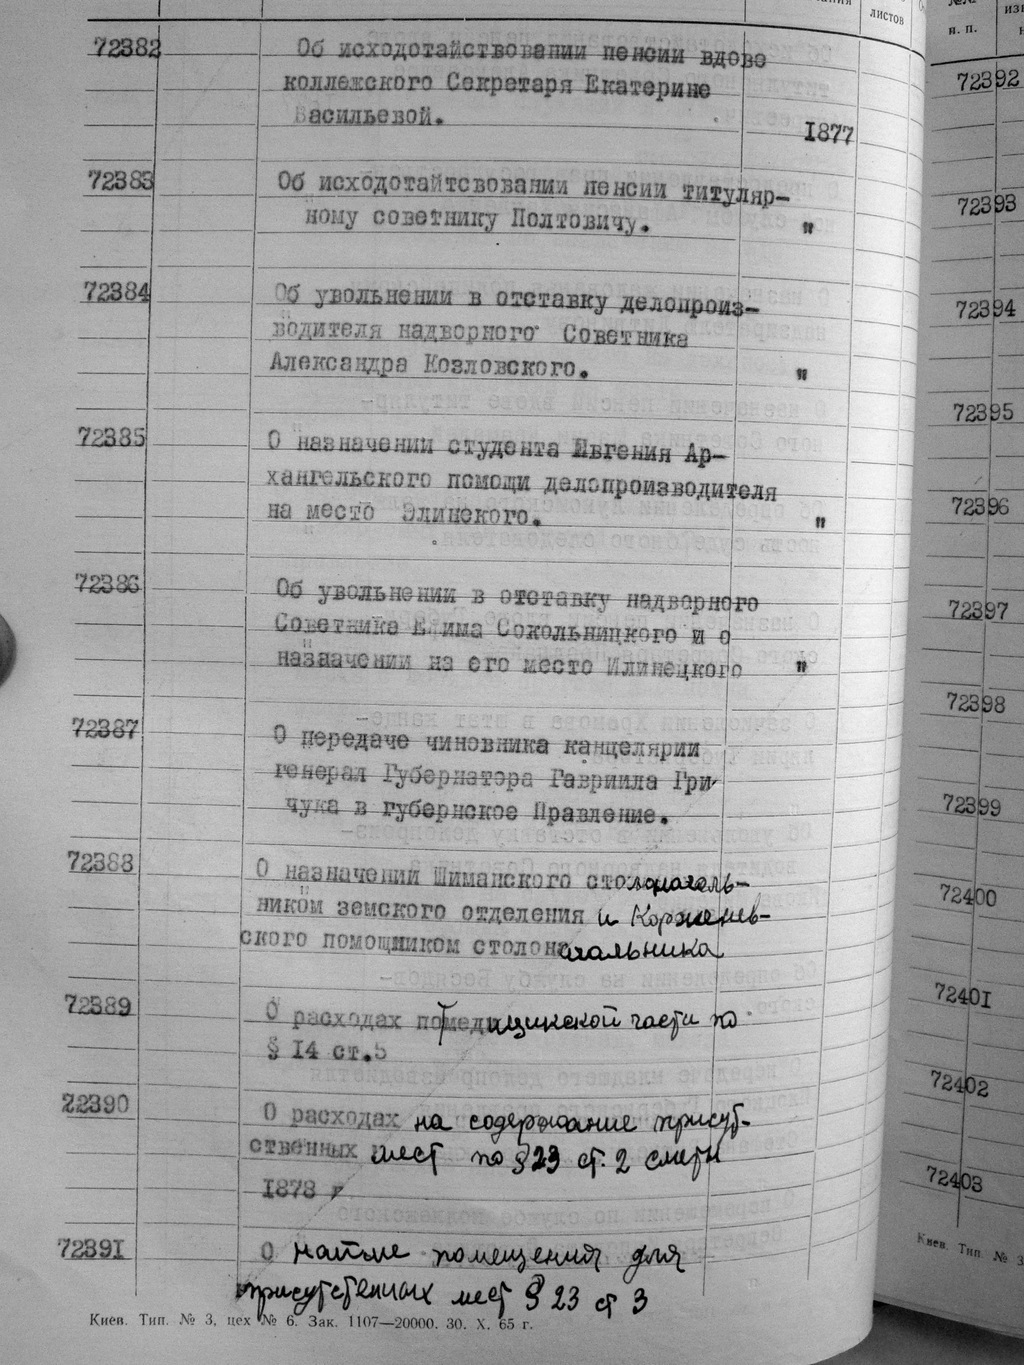 листов
72382 Об исходотайствовании пенсии вдове
коллежского Секретаря Екатерине
Васильевой.
1877
72383 Об исходотайтсвовании пенсии титуляр-
ному советнику Полтовичу. "
72384 Об увольнении в отставку делопроиз-
водителя надворного Советника
Александра Козловского. "
72385 О назначении студента Евгения Ар-
хангельского помощи делопроизводителя
на место Элинского. "
72386 Об увольнении в отставку надворного
Советника Е има Сокольницкого и о
назначении на его место Илинецкого "
72387 О передаче чиновника канцелярии
генерал Губернатора Гавриила Гри-
чука в губернское Правление.
72388 О назначений Шиманского столоначаль-
ником земского отделения и Корженев-
ского помощником столоначальника
72389 О расходах по части по
§ 14 ст.5
22390 О расходах на содержание присут-
ственных мест по § 23 ст. 2 сметы
1878 г
72391 О найме помещения для
присутственных мест § 23 ст 3
Киев. Тип. № 3, цех № 6. Зак. 1107—20000. 30. X. 65 г.
№№
п. п.
72392
72393
72394
72395
72396
72397
72398
72399
72400
72401
72402
72403
Киев. Тип. № 3